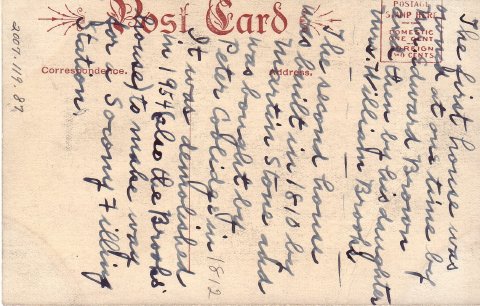 Post Card
POSTAGE
STAMP HERE
DOMESTIC
ONE CENT
FOREIGN
TWO CENTS
Correspondence.
Address.
The first house was
owned at one time by
Edward Brown
and then by his daughter
Mrs. William Brooks
The second house
was built in 1810 by
Martin Stone and
was bought by
Peter Coolidge in 1812
It was demolished
in 1954 (also the Brooks'
house) to make way
for Socony filling
station.